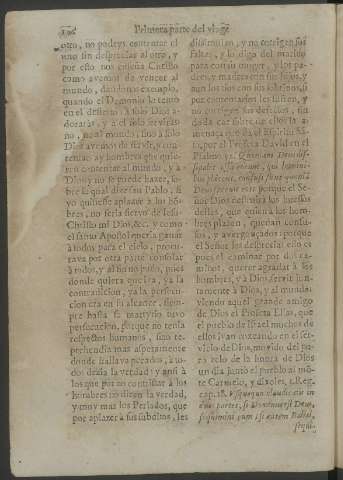 Primera parte del viage
otro, no podeys contentar al
uno sin despreciar al otro, y
por esto nos enseña Christo
como avemos de vencer al
mundo, dandonos exemplo,
quando el Demonio le tentò
en el desierto: A solo Dios a-
doraràs, y a el solo serviràs:
no, no al mundo, sino à solo
Dios avemos de servir, y con-
tentar: ay hombres que quie-
ren contentar al mundo, y a
Dios y no se puede hazer, so-
bre lo qual dize san Pablo, si
yo quisiesse aplazer à los hō-
bres, no seria siervo de Iesu
Christo mi Dios, &c. y como
el santo Apostol queria ganar
à todos para el cielo, procu-
rava por otra parte consolar
à todos, y al fin no pudo, pues
donde quiera que iva, ya la
contradicion, ya la persecu-
cion era en su alcance, siem-
pre hasta su martyrio tuvo
persecucion, porque no tenia
respectos humanos, sino re-
prehendia mas asperamente
donde hallava pecados, à to-
dos dezia la verdad: y ansi à
los que por no contristar a los
hombres no dizen la verdad,
y muy mas los Perlados, que
por aplazer à sus subditos, les
dissimulan, y no corrigen sus
faltas, y lo digo del marido
para con su muger, y los pa-
dres, y madres con sus hijos, y
aun los tios con sus sobrinos, si
por contentarlos les sufren, y
no corrigen sus defectos, sin
duda cae sobre los ellos la a-
menaça que da el Espiritu Sā-
to, por el Profeta David en el
Psalmo 52. Quoniam Deus dis-
sipavit ossa eorum, qui homini-
bus placent, confusi sunt quoniā
Deus sprevit eos: porque el Se-
ñor Dios destruirà los huessos
destos, que quieren a los hom-
bres plazen, quedan confu-
sos, y avergonçados: porque
el Señor los despreciò: ello es
pues el caminar por dos ca-
minos, querer agradar à los
hombres, y à Dios servir jun-
tamente à Dios, y al mundo:
viendo aquel grande amigo
de Dios el Profeta Elias, que
el pueblo de Israel muchos de
ellos ivan coxeando en el ser-
vicio de Dios, movido del pu-
ro zelo de la honra de Dios
un dia juntò el pueblo al mō-
te Carmelo, y dixoles, 3. Reg.
cap. 18. Usquequo claudicatis in
duas partes, si Dominus est Deus,
sequimini eum: si autem Baal,
sequi-